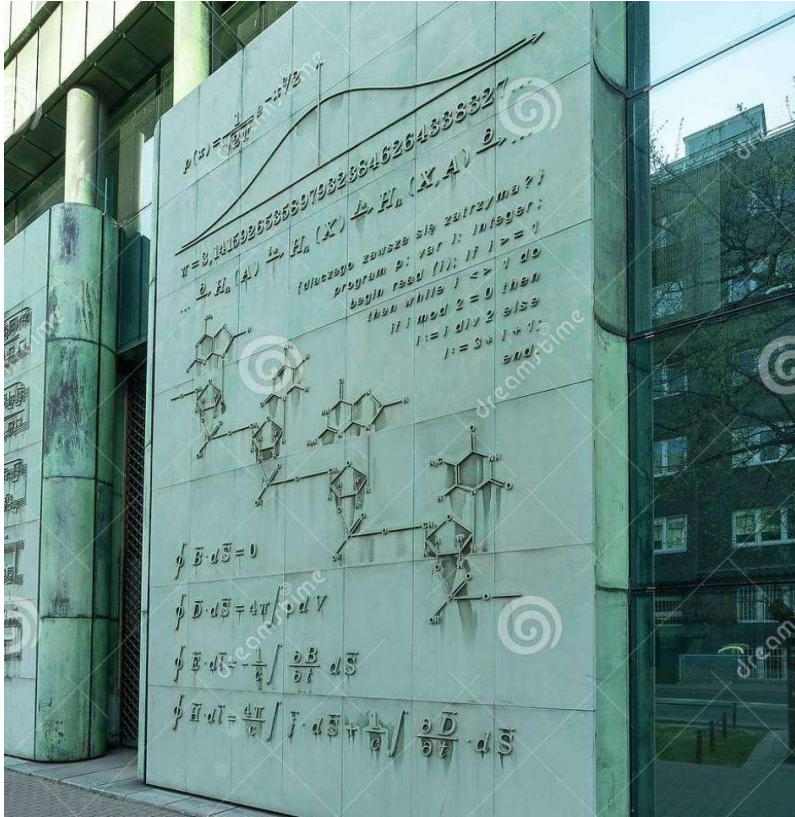 p(x) = 1/√2π e^-x²/2
π = 3,14159265358979323846264338327...
... ∂→ Hₙ(A) i*→ Hₙ(X) j*→ Hₙ(X, A) ∂→ ...
{dlaczego zawsze się zatrzyma?}
program p; var i: integer;
begin read (i); if i >= 1
then while i <> 1 do
if i mod 2 = 0 then
i := i div 2 else
i := 3 * i + 1;
end.
∮ B̄·dS̄ = 0
∮ D̄·dS̄ = 4π∫ρdV
∮ Ē·dl̄ = -1/c ∫ ∂B̄/∂t dS̄
∮ H̄·dl̄ = 4π/c ∫ j̄·dS̄ + 1/c ∫ ∂D̄/∂t·dS̄
dreamstime